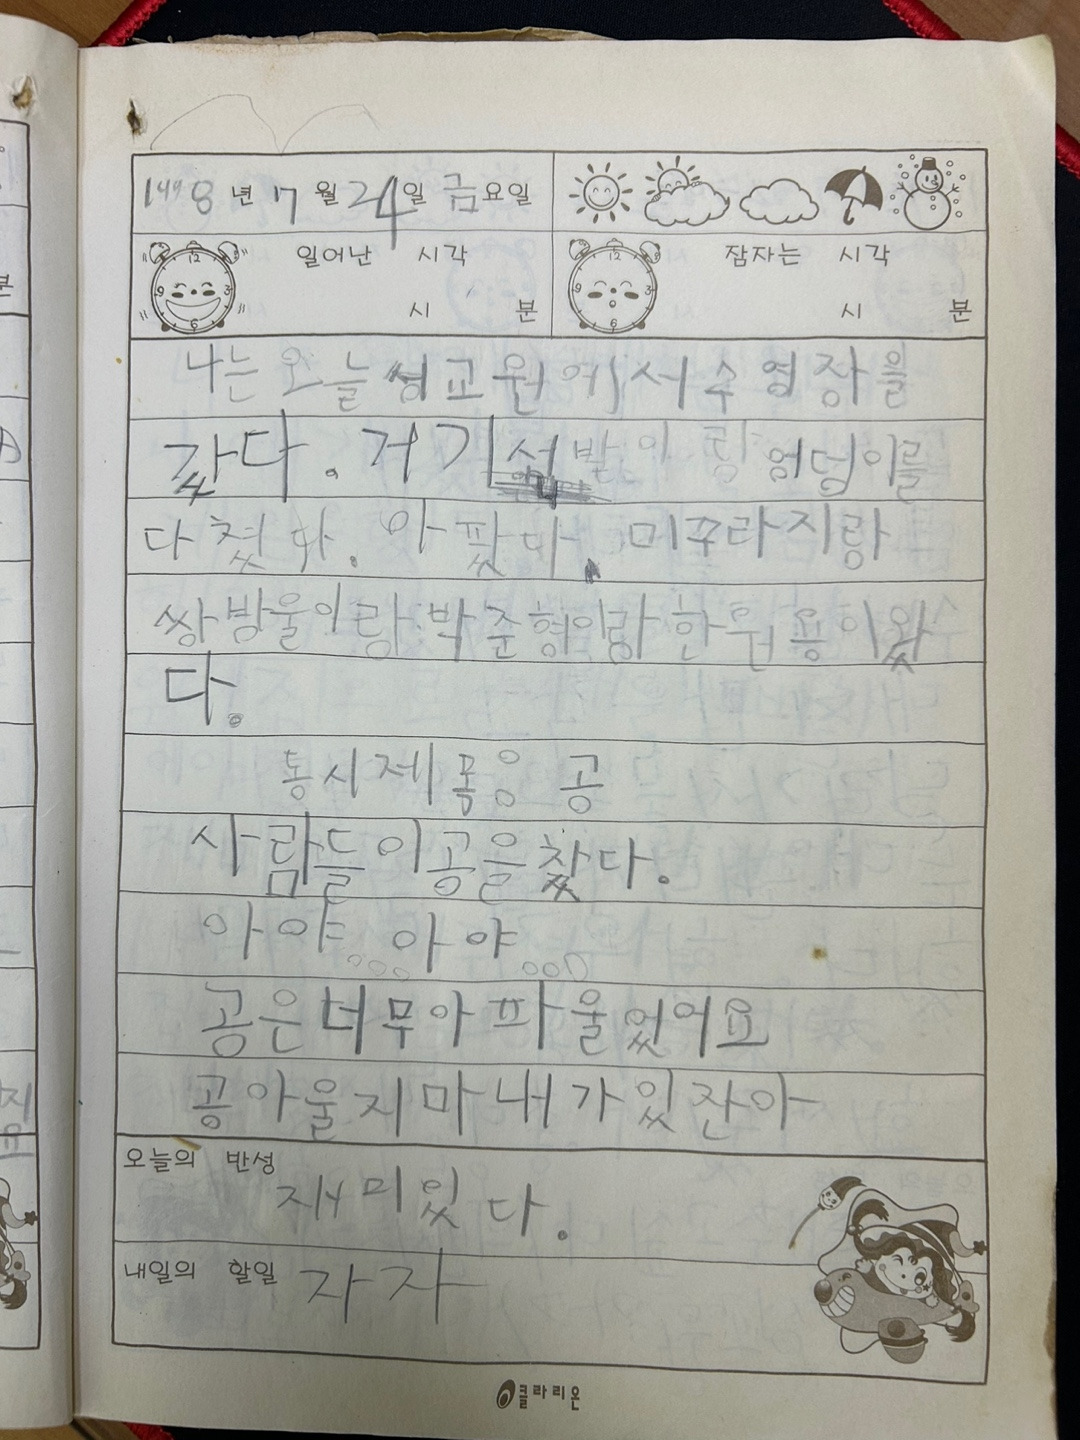 1998년 7월 24일 금요일
일어난 시각
시 분
잠자는 시각
시 분
나는 오늘 성교원에서 수영장을
갔다. 거기서 발이랑 엉덩이를
다쳤다. 아팠다. 미꾸라지랑
쌍방울이랑 박준형이랑 한원용이 왔
다.
동시제목응 공
사람들이 공을 찼다.
아야... 아야...
공은 너무 아파 울었어요
공아 울지마 내가 있잔아
오늘의 반성
재미있다.
내일의 할일
자자
클라리온